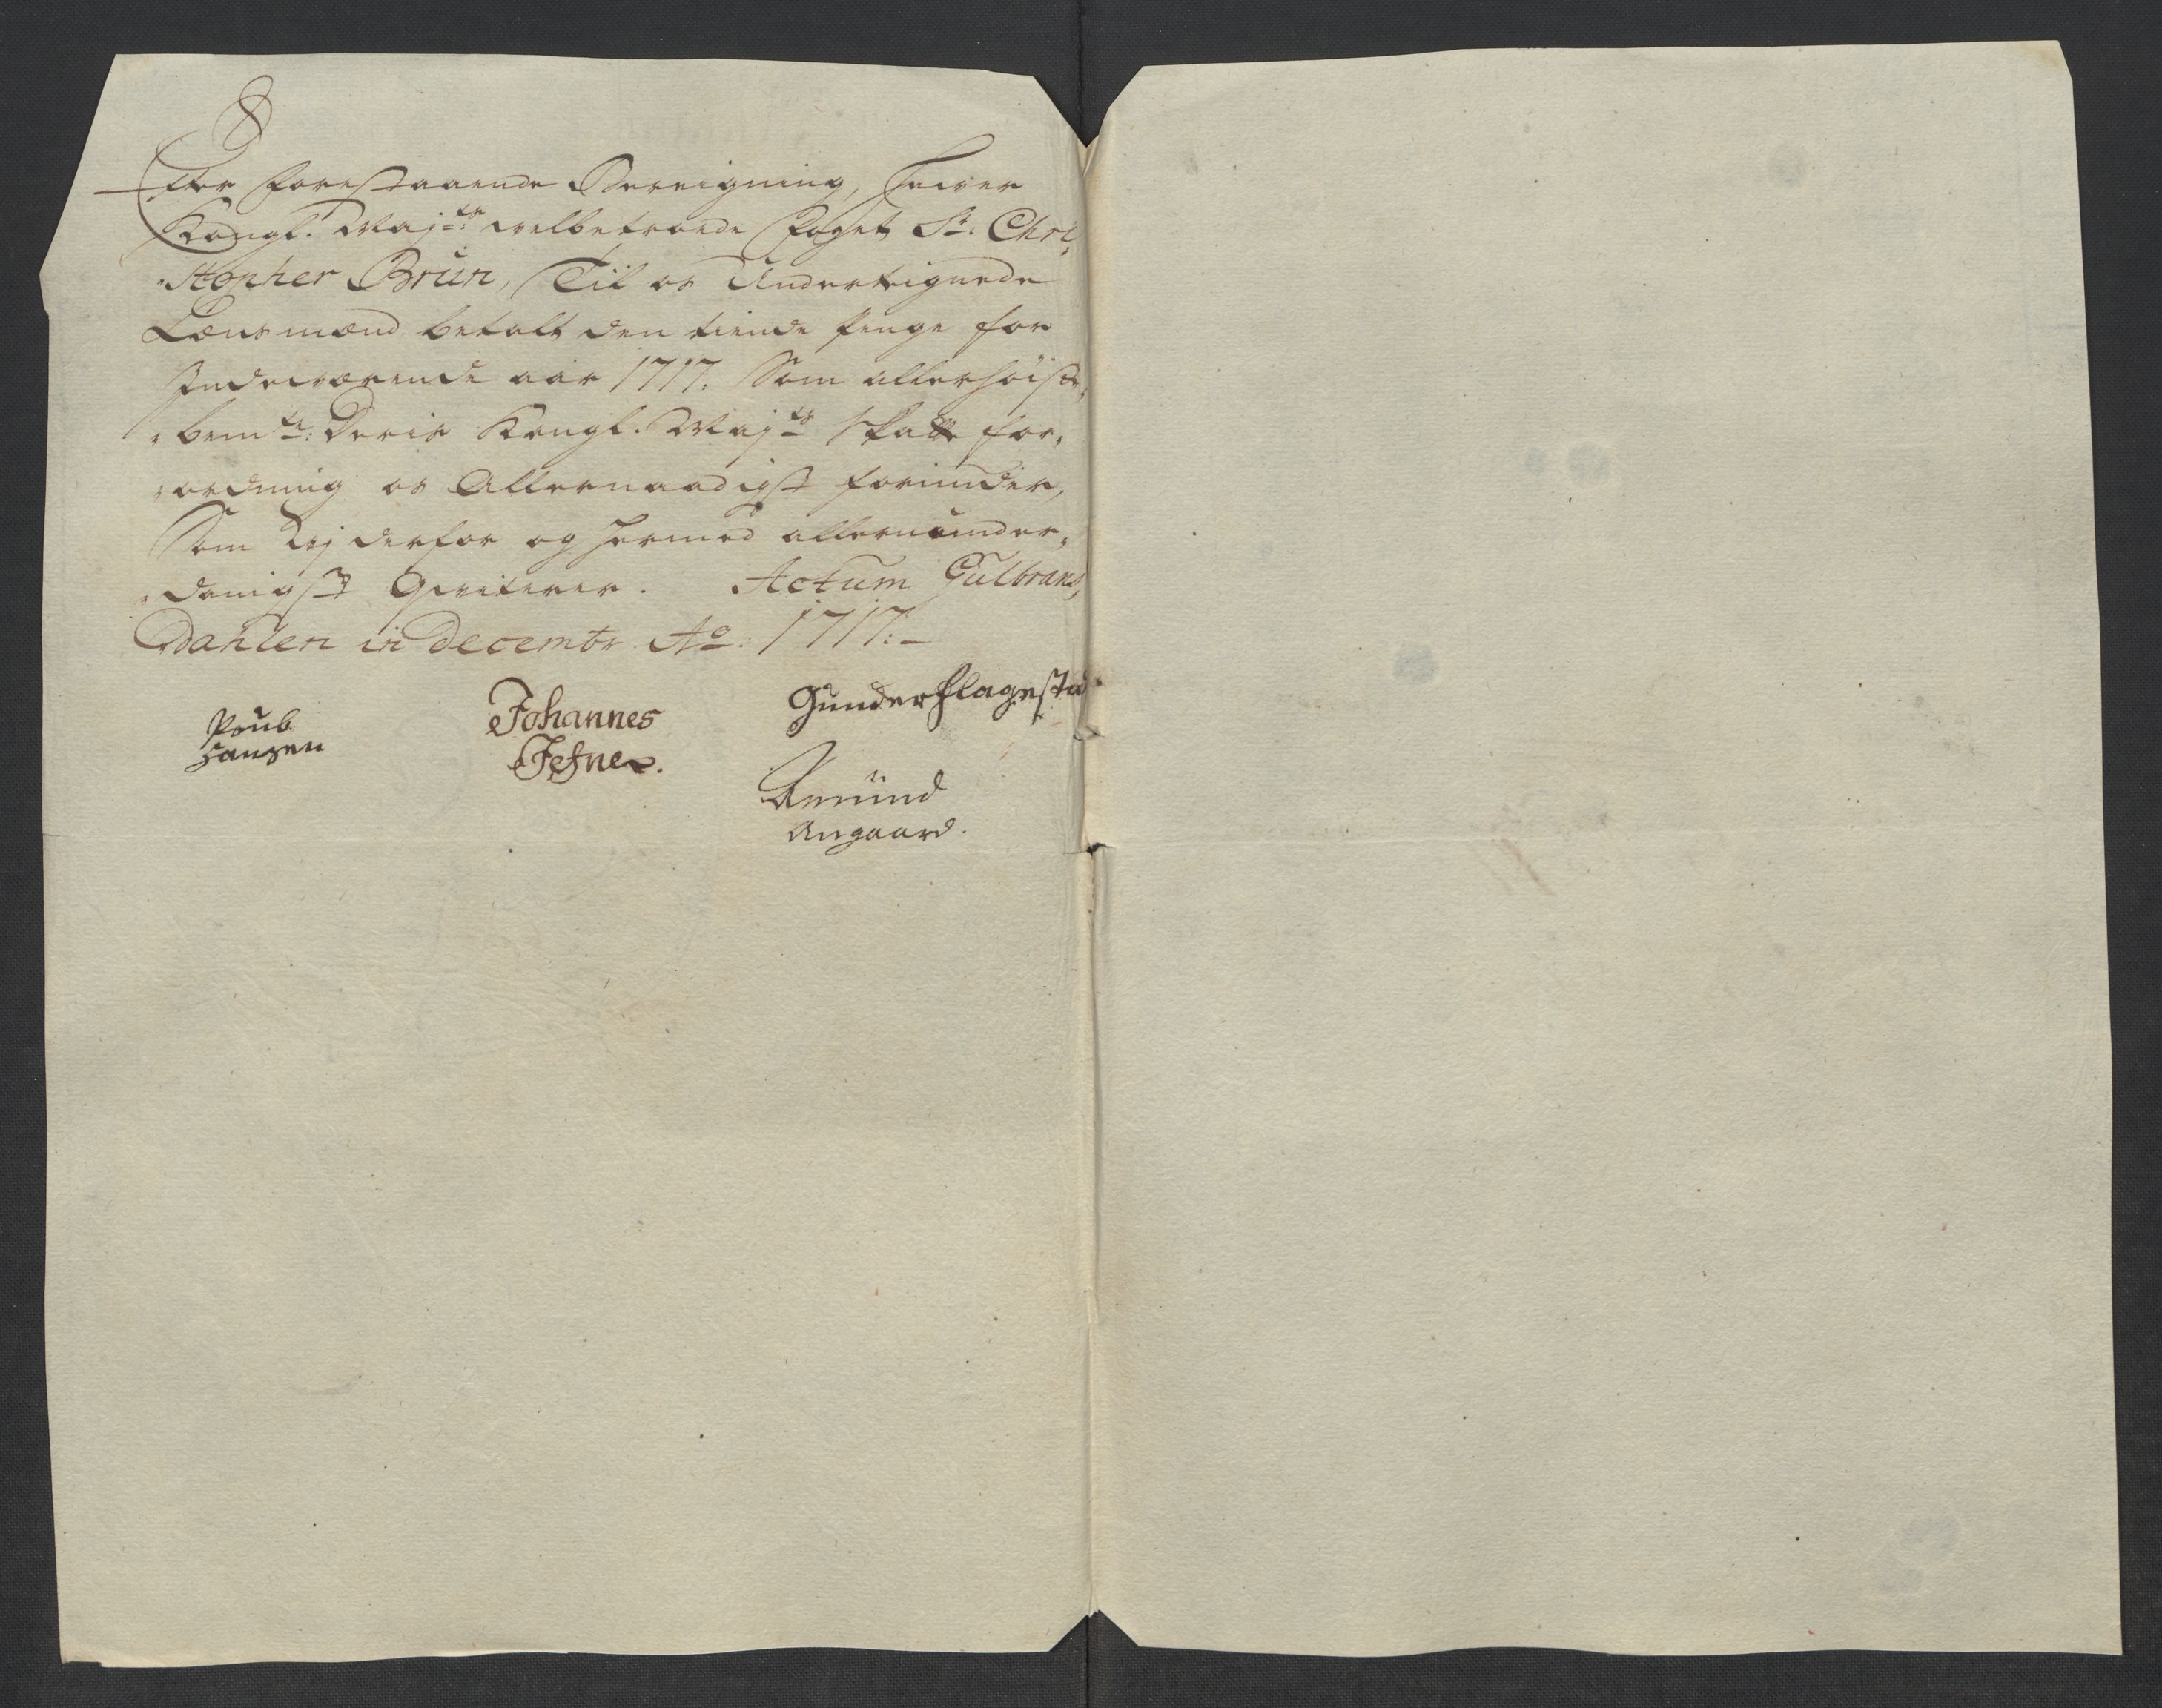 Efter forestaaende Bereigning, hawer
Kongl. Maj:ts welbetroede foget Sr: Chri,
,stopher Brun, Til os Undertegnede
Lensmænd betalt den tiende penge for
Indewærende aar 1717. Som allerhøist,
,bemte: Deris Kongl. Majts Skatte for,
,ordning os Allernaadigst forunder,
Som wj derfor og hermed allerunder,
,danigst Qviterer. Actum Gulbrans,
Dahlen in Decembr Ao: 1717:-
Poul Hansen
Johannes Jefne.
Gunder Flagestad
Amund Angaard.